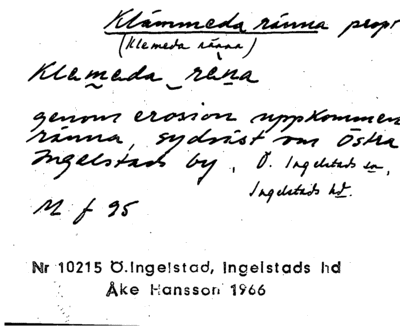 Klämmeda ränna propr
(Klemeda ränna)
Klemeda rena
genom erosion uppkommen
ränna, sydväst om Östra
Ingelstads by, Ö. Ingelstads sn,
Ingelstads hd.
M f 95
Nr 10215 Ö.Ingelstad, Ingelstads hd
Åke Hansson 1966